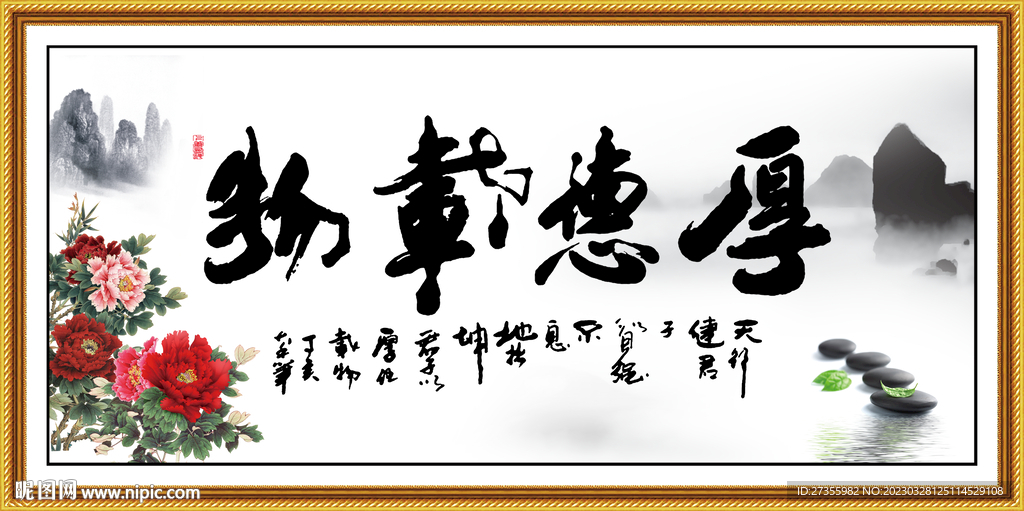 厚德載物
天行健君子以自强不息地势坤君子以厚德載物丁亥
昵图网 www.nipic.com
ID:27355982 NO:20230328125114529108